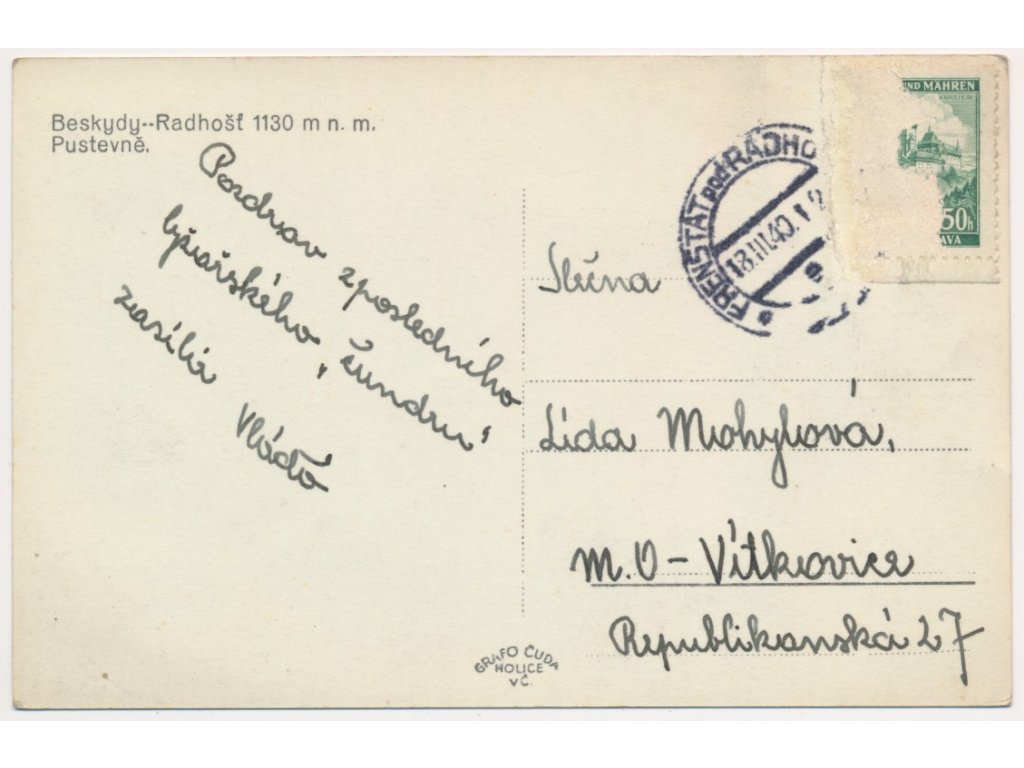 Beskydy--Radhošť 1130 m n. m.
Pustevně.
Pozdrav z posledního
lyžařského „čundru“
zasílá
Vláďa
FRENŠTÁT pod RADHO
18.III.40.
ND MÄHREN
KARLSTEJN
50h
AVA
Slečna
Lída Mohylová,
M.O-Vítkovice
Republikanská 27
GRAFO ČUDA
HOLICE
V Č.